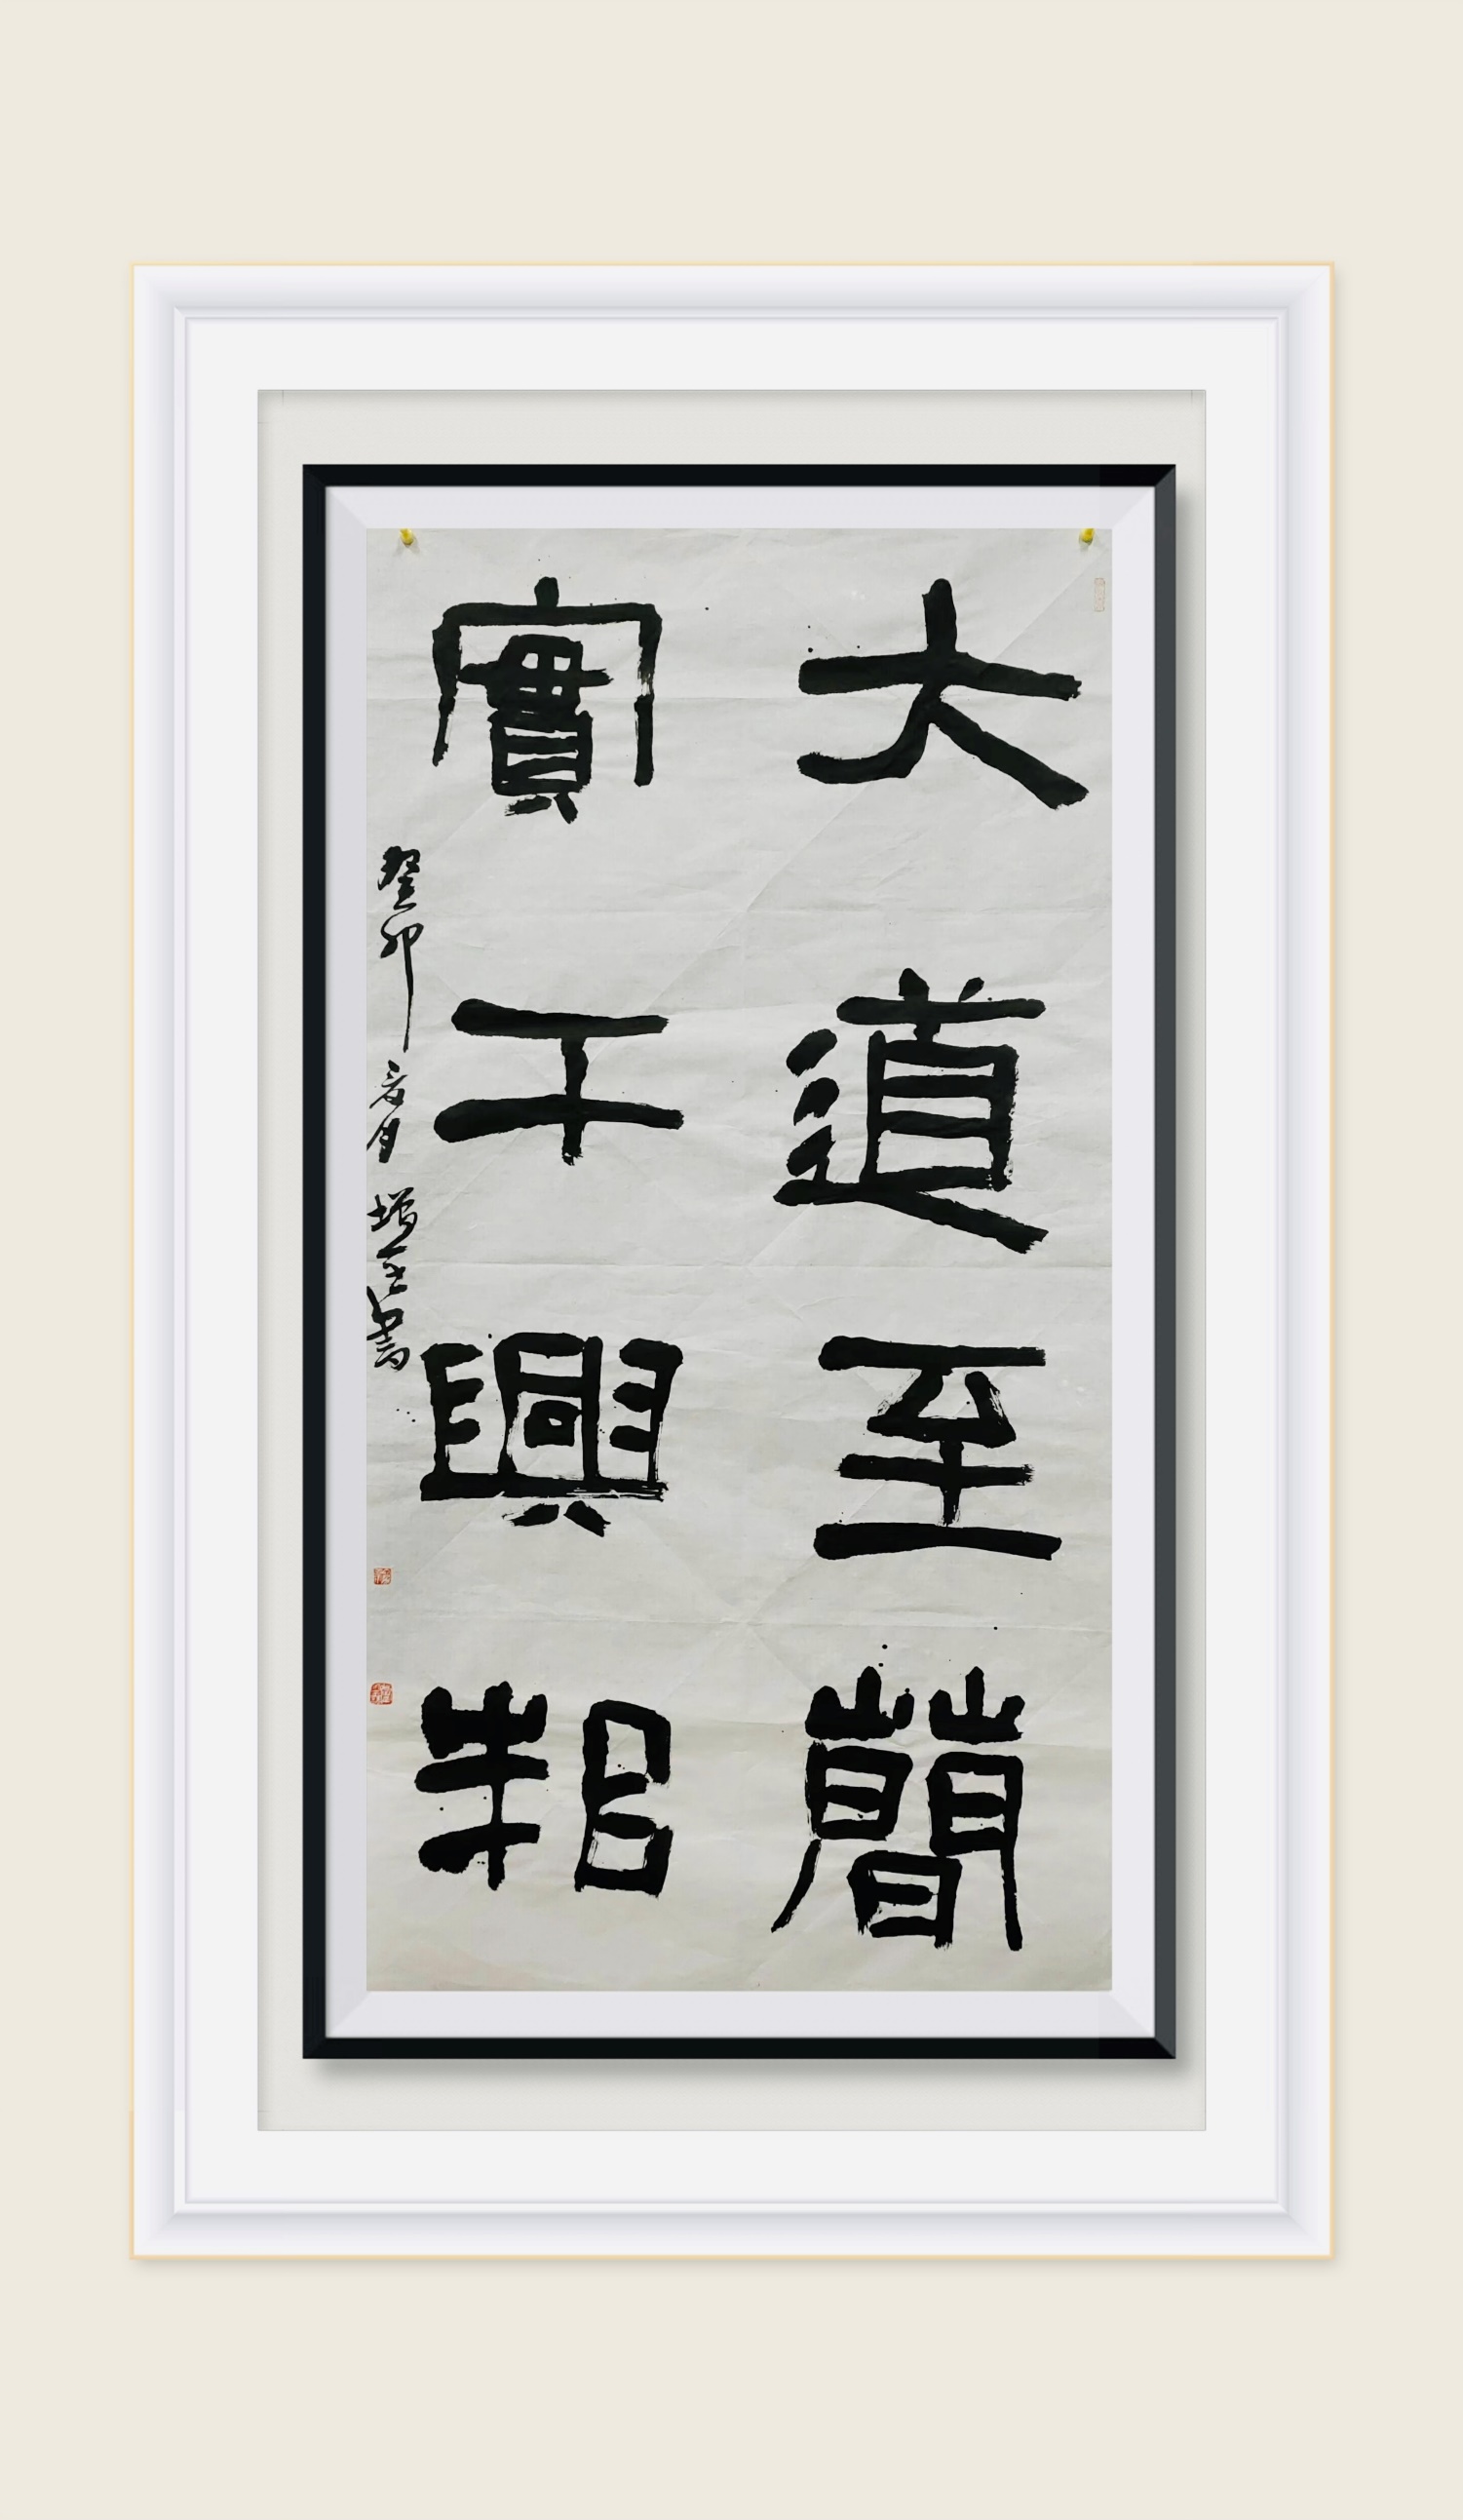 大道至簡
實干興邦
癸卯夏月增玉書